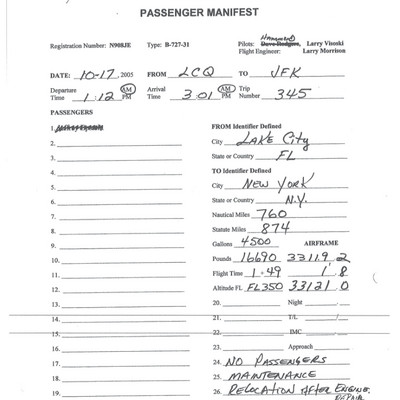 PASSENGER MANIFEST
Hammond
Registration Number: N908JE Type: B-727-31 Pilots: Dave Rodgers, Larry Visoski
Flight Engineer: Larry Morrison
DATE: 10-17, 2005 FROM LCQ TO JFK
Departure Time 1:12 AM PM Arrival Time 3:01 AM PM Trip Number 345
PASSENGERS
1.
FROM Identifier Defined
2. City LAKE CITY
3. State or Country FL
4. TO Identifier Defined
5. City NEW YORK
6. State or Country N.Y.
7. Nautical Miles 760
8. Statute Miles 874
9. Gallons 4500 AIRFRAME
10. Pounds 16690 33119.2
11. Flight Time 1:49 1.8
12. Altitude FL FL350 33121.0
13. 20. Night
14. 21. I/L /
15. 22. IMC
16. 23. Approach
17. 24. NO PASSENGERS
18. 25. MAINTENANCE
19. 26. RELOCATION AFTER ENGINE
REPAIR